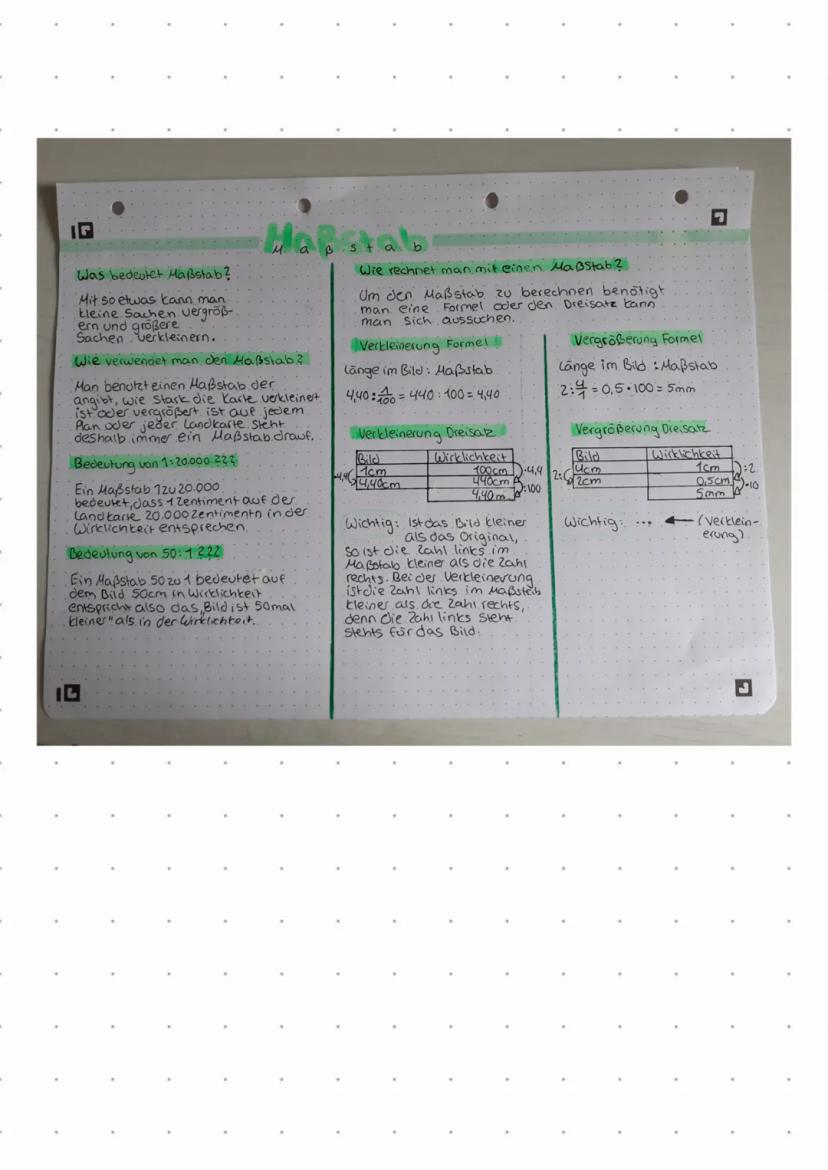 Maßstab
M a ß s t a b
Was bedeutet Maßstab?
Mit so etwas kann man
kleine Sachen vergröß-
ern und größere
Sachen verkleinern.
Wie verwendet man den Maßstab?
Man benutzt einen Maßstab der
angibt, wie stark die Karte verkleinert
ist oder vergrößert ist auf jedem
Plan oder jeder Landkarte steht
deshalb immer ein Maßstab drauf.
Bedeutung von 1:20.000 ???
Ein Maßstab 1 zu 20.000
bedeutet, dass 1 Zentiment auf der
Landkarte 20.000 Zentimentn in der
Wirklichkeit entsprechen.
Bedeutung von 50:1 ???
Ein Maßstab 50 zu 1 bedeutet auf
dem Bild 50cm in Wirklichkeit
entspricht also das „Bild ist 50mal
kleiner" als in der Wirklichkeit.
Wie rechnet man mit einen Maßstab?
Um den Maßstab zu berechnen benötigt
man eine Formel oder den Dreisatz kann
man sich aussuchen.
Verkleinerung Formel
Länge im Bild : Maßstab
4,40 : 1/100 = 440 : 100 = 4,40
Verkleinerung Dreisatz
Bild Wirklichkeit
1cm 100cm :4,4
4,40cm 440cm :100
4,40m
Wichtig: Ist das Bild kleiner
als das Original,
so ist die Zahl links im
Maßstab kleiner als die Zahl
rechts. Bei der Verkleinerung
ist die Zahl links im Maßstab
kleiner als die Zahl rechts,
denn die Zahl links steht
stehts für das Bild.
Vergrößerung Formel
Länge im Bild : Maßstab
2 : 4/1 = 0,5 • 100 = 5mm
Vergrößerung Dreisatz
Bild Wirklichkeit
2: 4cm 1cm :2
2cm 0,5cm •10
5mm
Wichtig: ... ← (Verklein-
erung)